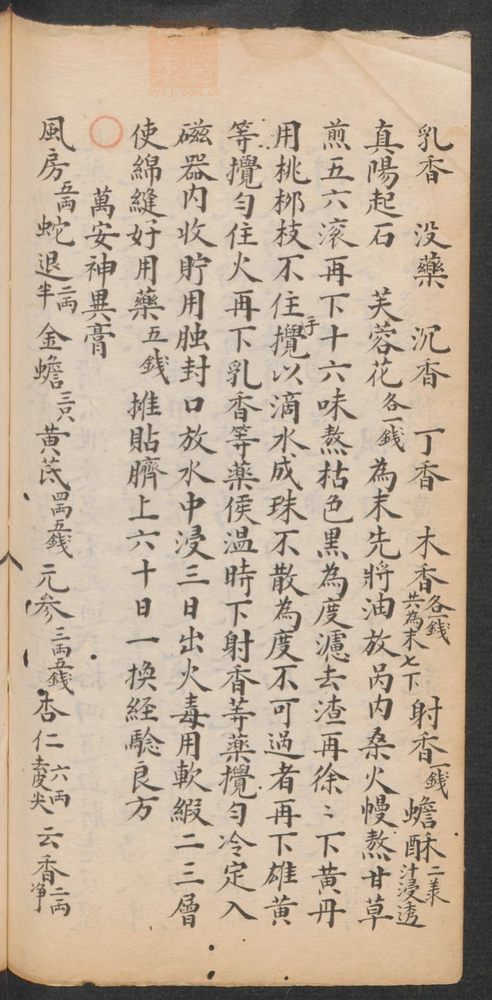 乳香 没藥 沉香 丁香 木香各一錢共為末七下 射香一錢 蟾酥二羡汁浸透
真陽起石 芙蓉花各一錢 為末先將油放呙内桑火慢熬甘草
煎五六滚再下十六味熬枯色黑為度濾去渣再徐〻下黄丹
用桃柳枝不住手攪以滴水成珠不散為度不可過者再下雄黄
等攪匀住火再下乳香等藥侯温時下射香等藥攪匀冷定入
磁器内收貯用蚀封口放水中浸三日出火毒用軟緞二三層
使綿縫好用藥五錢推貼臍上六十日一換経驗良方
萬安神異膏
風房五両 蛇退二両半 金蟾三只 黄芪四両五錢 元参三両五錢 杏仁六両去皮尖 云香二両净